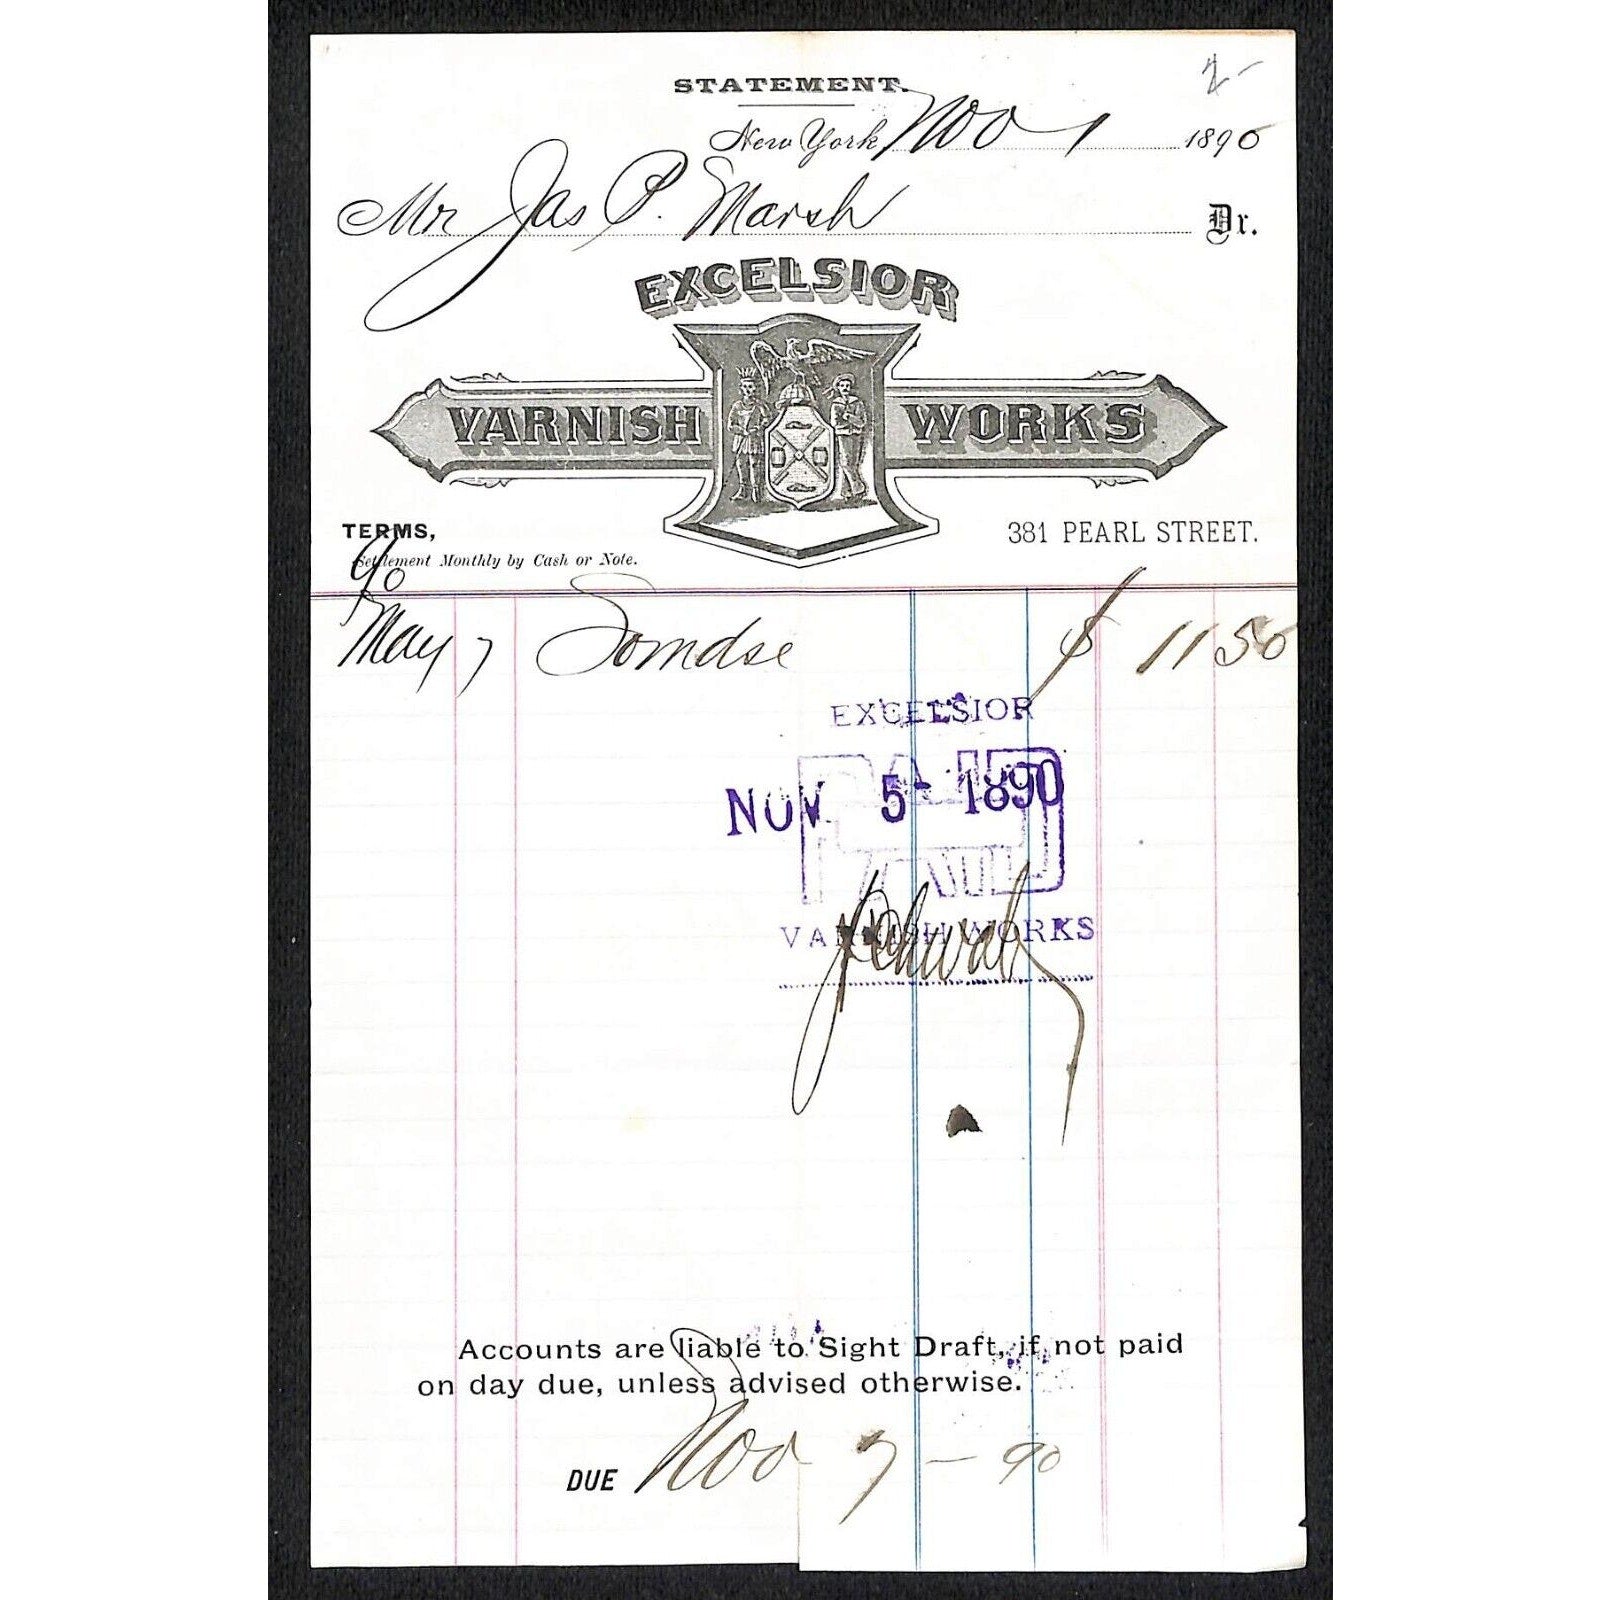 2-
STATEMENT.
New York, Nov 1 1890
Mr Jas P. Marsh Dr.
EXCELSIOR
VARNISH WORKS
TERMS,
Settlement Monthly by Cash or Note.
381 PEARL STREET.
90
May 7 To mdse $ 11 50
EXCELSIOR
PAID
NOV 5- 1890
VARNISH WORKS
Accounts are liable to Sight Draft, if not paid
on day due, unless advised otherwise.
DUE Nov 7 - 90